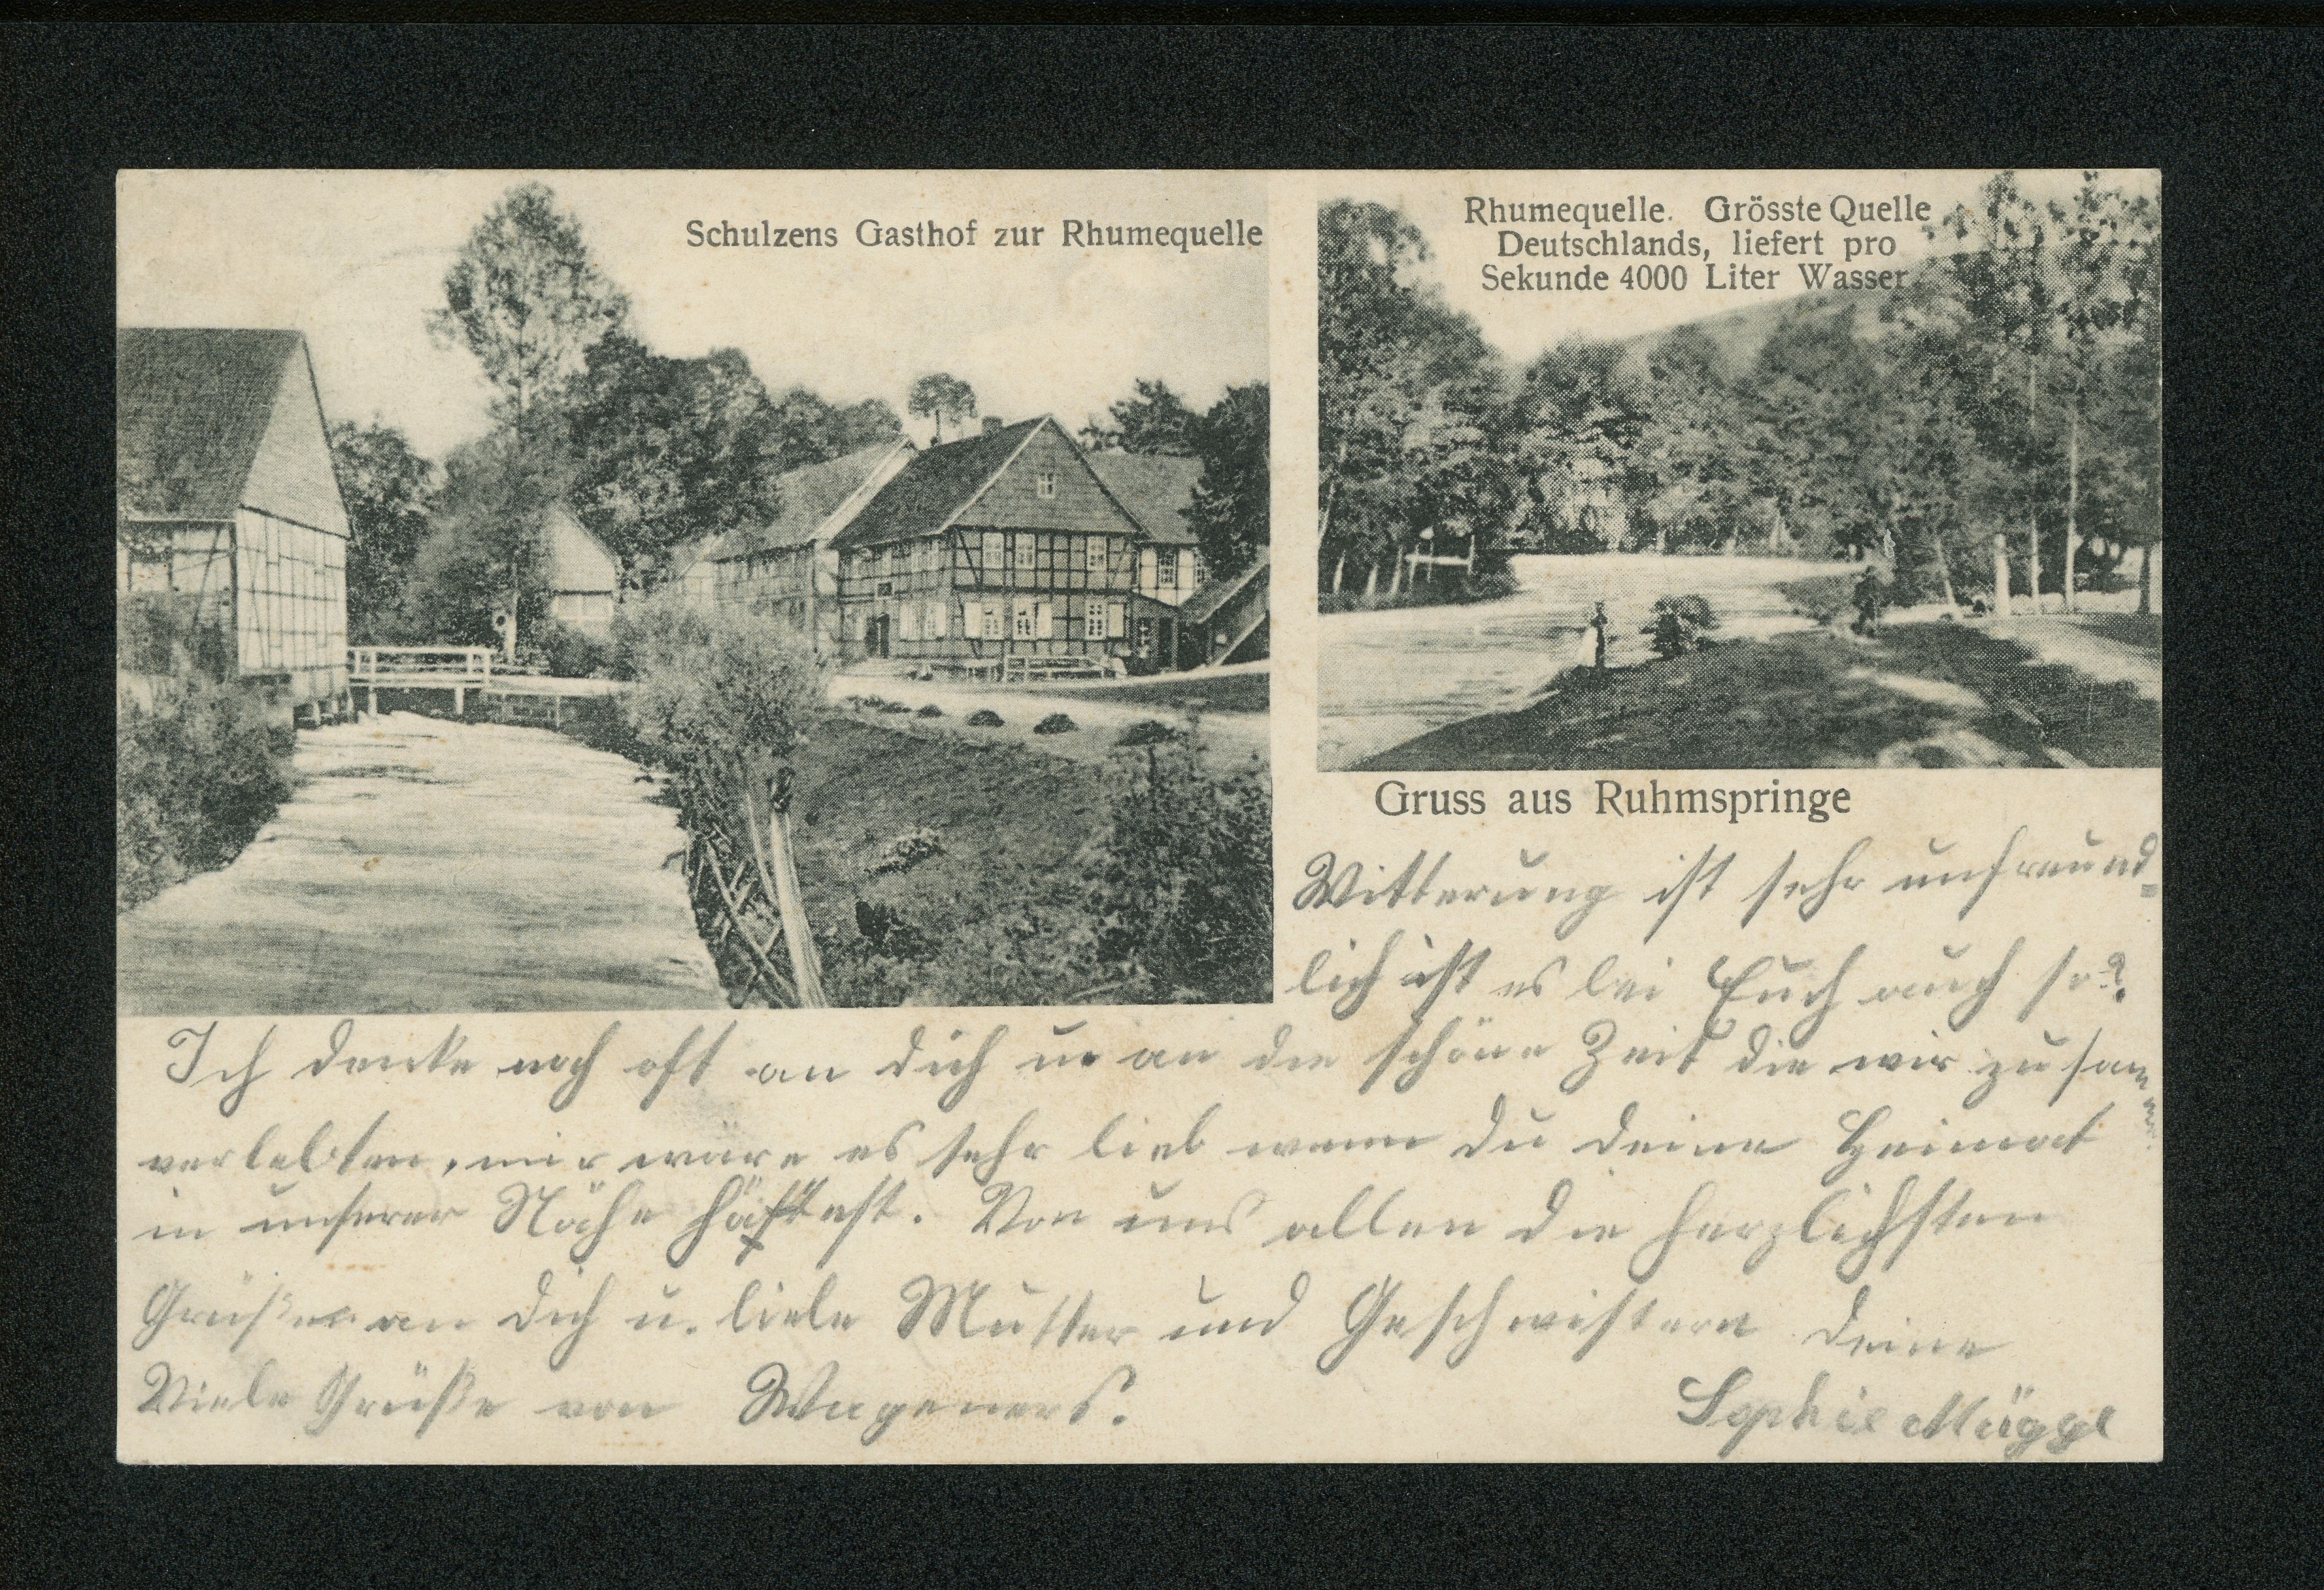 Schulzens Gasthof zur Rhumequelle
Rhumequelle. Grösste Quelle
Deutschlands, liefert pro
Sekunde 4000 Liter Wasser
Gruss aus Ruhmspringe
Witterung ist sehr unfreund=
lich ist es bei Euch auch so?
Ich denke noch oft an dich u. an die schöne Zeit die wir zusam
verlebten, mir wäre es sehr lieb wenn du deine Heimat
in unserer Nähe hättest. Von uns allen die herzlichsten
Grüße an dich u. liebe Mutter und Geschwistern deine
Viele Grüße von Wageners. Sophie